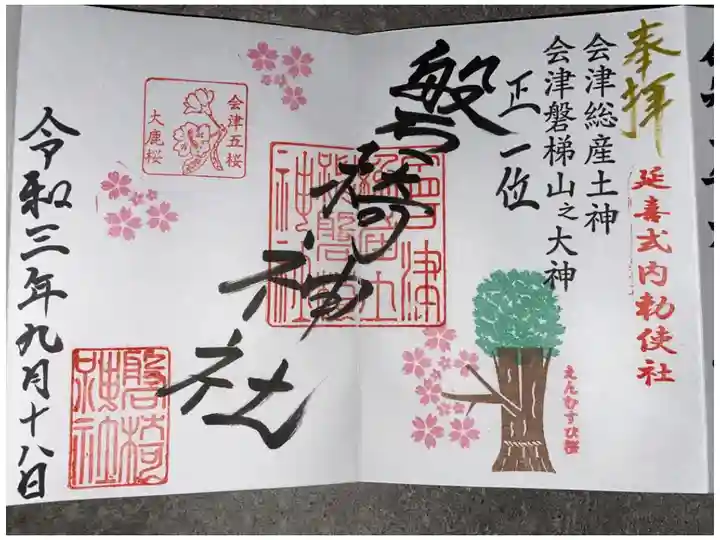 奉拝
延喜式内勅使社
会津総産土神
会津磐梯山之大神
正一位
えんむすび桜
磐椅神社
会津五桜
大鹿桜
磐椅神社
令和三年九月十八日